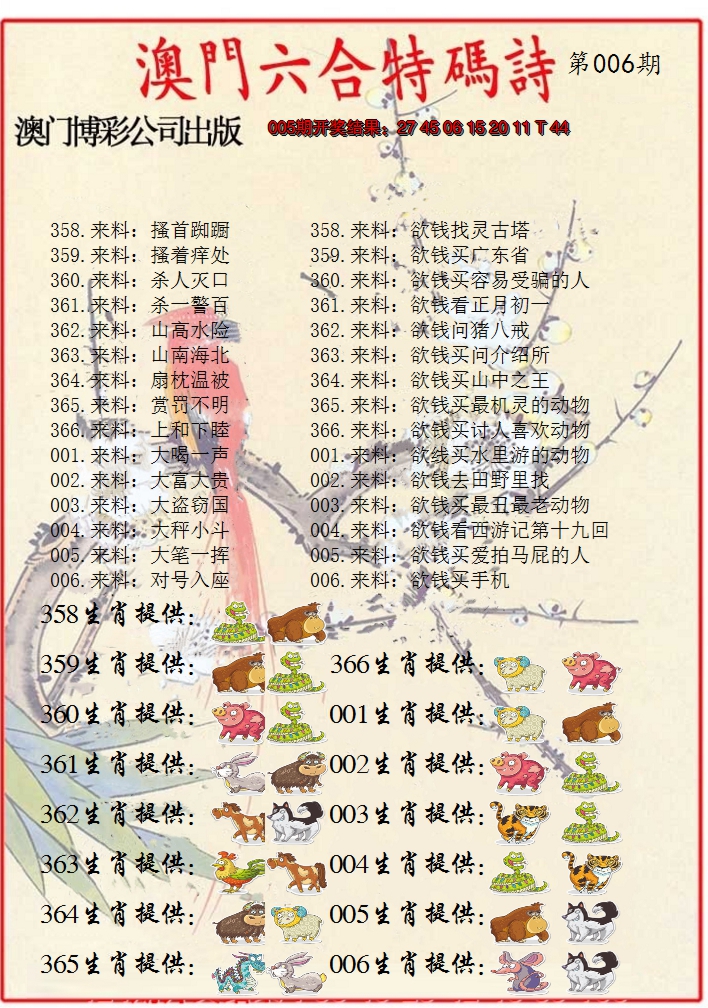 澳門六合特碼詩 第006期
澳门博彩公司出版 005期开奖结果：27 45 06 15 20 11 T 44
358.来料：搔首踟蹰 358.来料：欲钱找灵古塔
359.来料：搔着痒处 359.来料：欲钱买广东省
360.来料：杀人灭口 360.来料：欲钱买容易受骗的人
361.来料：杀一警百 361.来料：欲钱看正月初一
362.来料：山高水险 362.来料：欲钱问猪八戒
363.来料：山南海北 363.来料：欲钱买问介绍所
364.来料：扇枕温被 364.来料：欲钱买山中之王
365.来料：赏罚不明 365.来料：欲钱买最机灵的动物
366.来料：上和下睦 366.来料：欲钱买讨人喜欢动物
001.来料：大喝一声 001.来料：欲钱买水里游的动物
002.来料：大富大贵 002.来料：欲钱去田野里找
003.来料：大盗窃国 003.来料：欲钱买最丑最老动物
004.来料：大秤小斗 004.来料：欲钱看西游记第十九回
005.来料：大笔一挥 005.来料：欲钱买爱拍马屁的人
006.来料：对号入座 006.来料：欲钱买手机
358生肖提供：
359生肖提供： 366生肖提供：
360生肖提供： 001生肖提供：
361生肖提供： 002生肖提供：
362生肖提供： 003生肖提供：
363生肖提供： 004生肖提供：
364生肖提供： 005生肖提供：
365生肖提供： 006生肖提供：